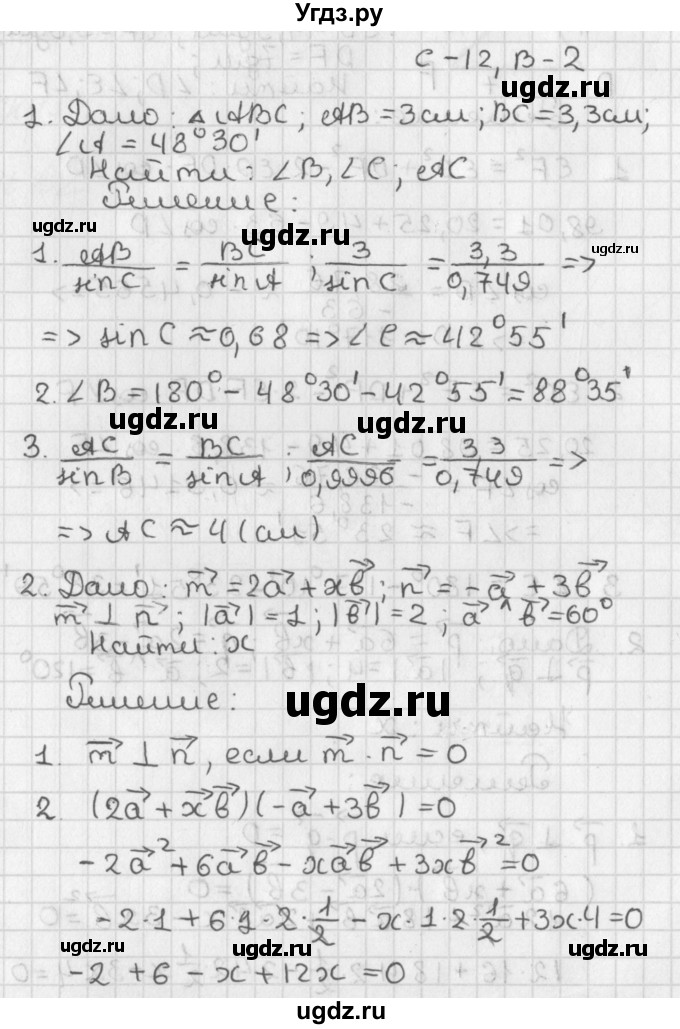 Угдз.ру
С-12, В-2
ugdz.ru
1. Дано: △ABC; AB = 3см; BC = 3,3см;
∠A = 48°30'
Найти: ∠B, ∠C; AC
Решение:
ugdz.ru
ugdz.ru
ugdz.ru
1. AB/sinC = BC/sinA ; 3/sinC = 3,3/0,749 =>
=> sinC ≈ 0,68 => ∠C ≈ 42°55'
2. ∠B = 180° - 48°30' - 42°55' = 88°35'
ugdz.ru
ugdz.ru
3. AC/sinB = BC/sinA ; AC/0,9996 = 3,3/0,749 =>
=> AC ≈ 4 (см)
2. Дано: m⃗ = 2a⃗ + xb⃗; n⃗ = -a⃗ + 3b⃗
m⃗ ⊥ n⃗; |a⃗| = 1; |b⃗| = 2; a⃗ ^ b⃗ = 60°
Найти: x
ugdz.ru
Решение:
ugdz.ru
1. m⃗ ⊥ n⃗, если m⃗ · n⃗ = 0
2. (2a⃗ + x⃗b⃗)(-a⃗ + 3b⃗) = 0
-2a⃗² + 6a⃗b⃗ - xa⃗b⃗ + 3xb⃗² = 0
-2·1 + 6·1·2·1/2 - x·1·2·1/2 + 3x·4 = 0
ugdz.ru
ugdz.ru
ugdz.ru
-2 + 6 - x + 12x = 0
ugdz.ru